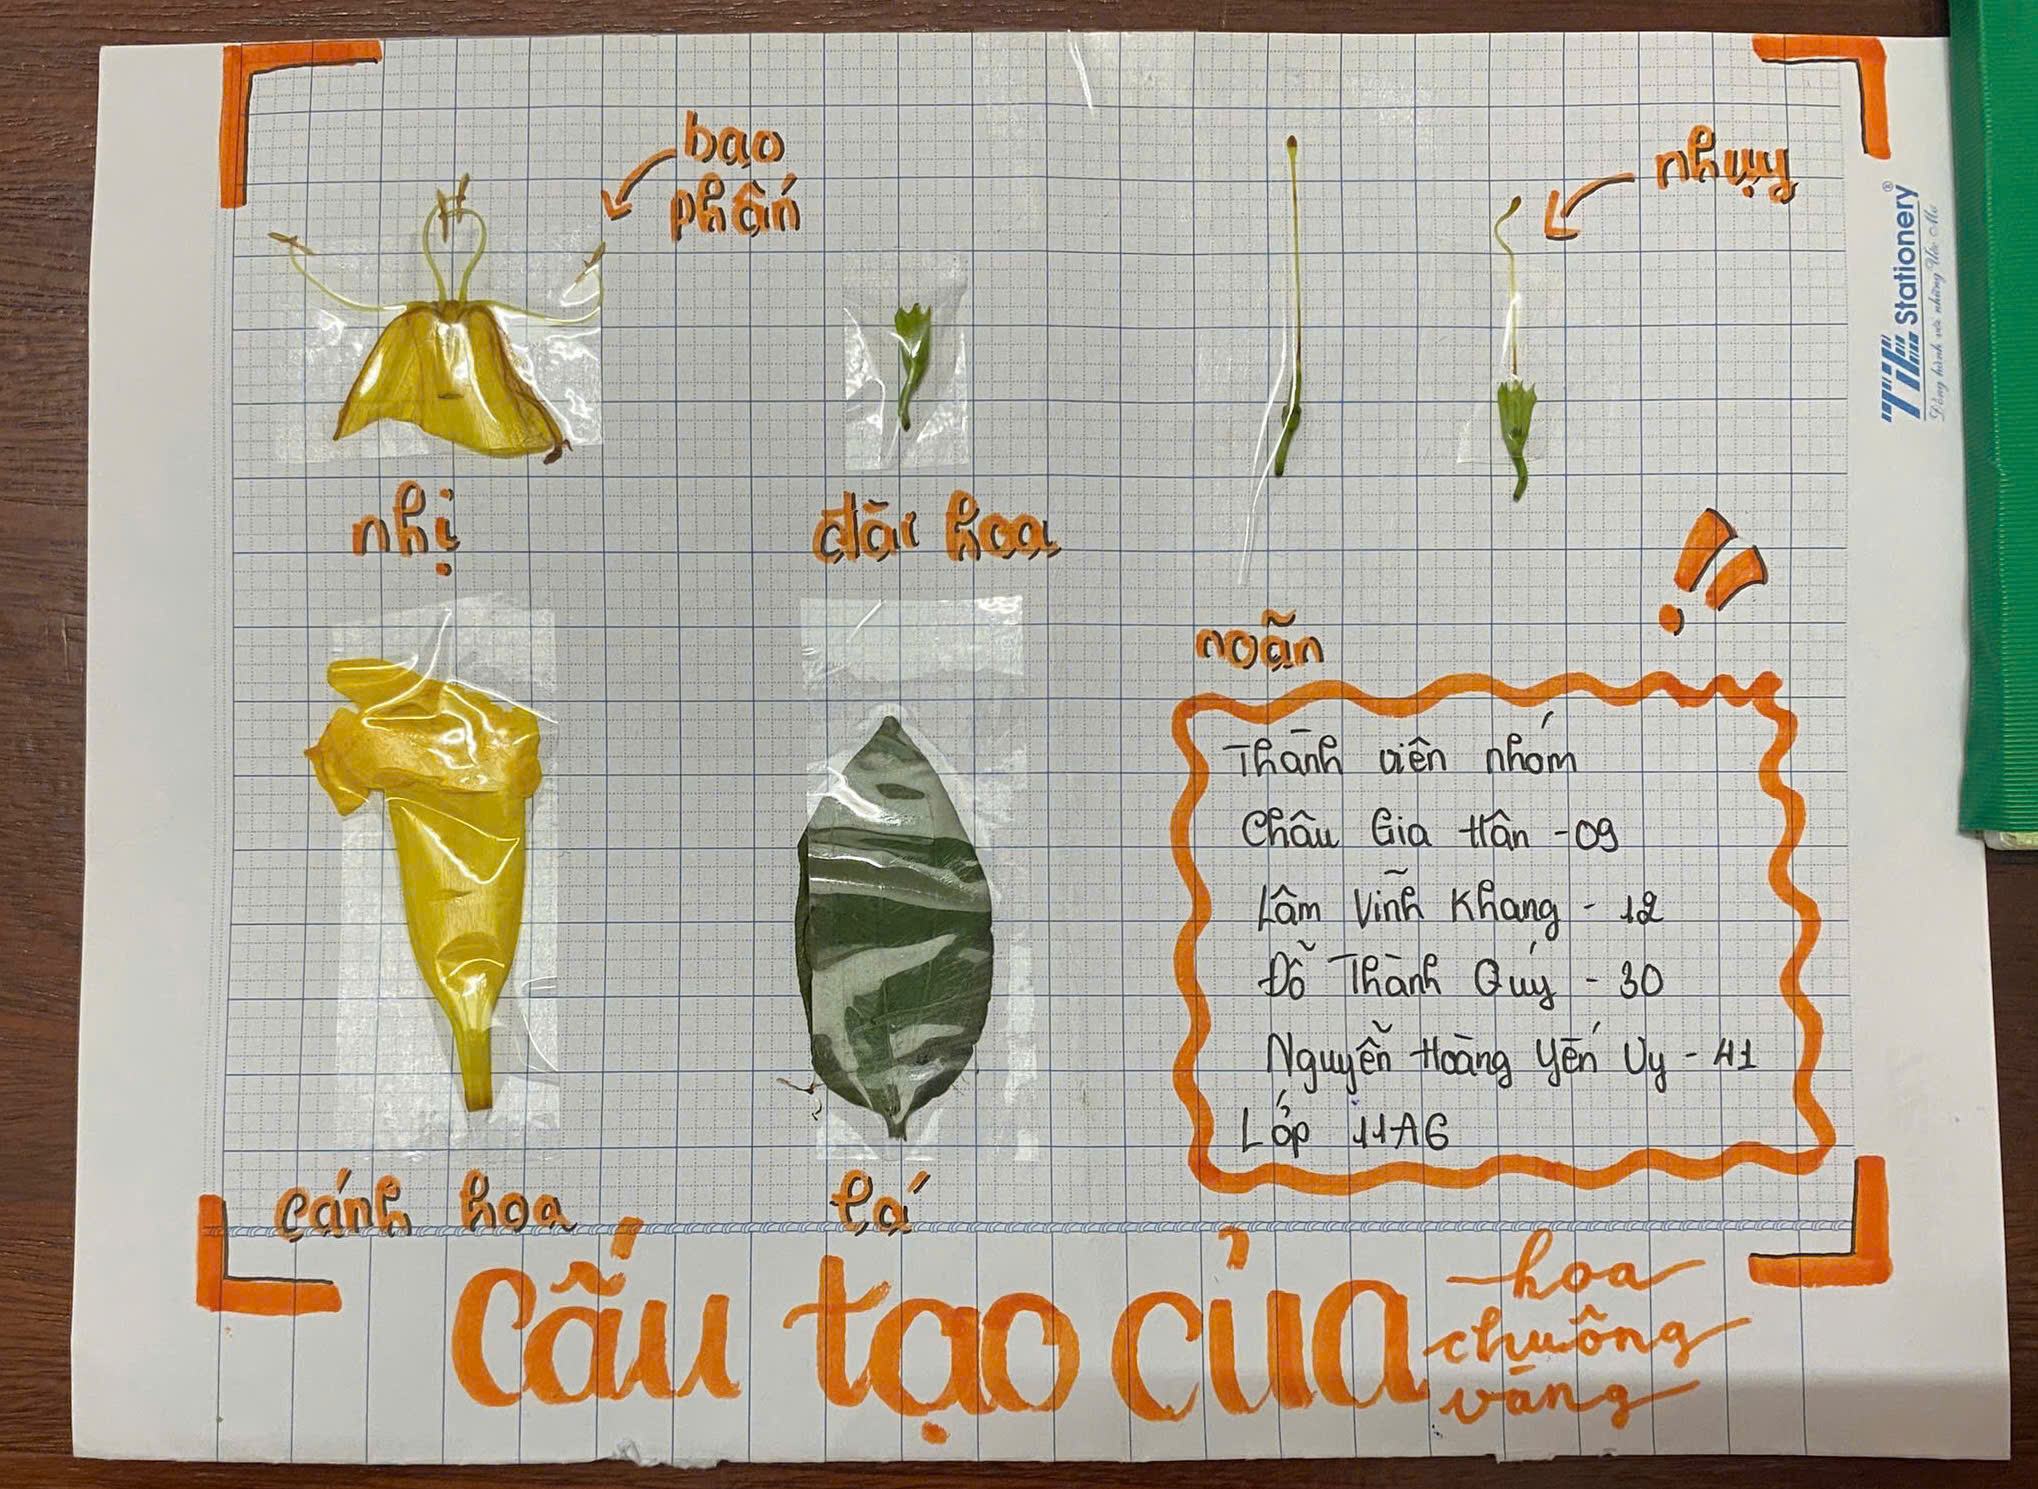 bao
phấn
nhụy
nhị
đài hoa
noãn
Thành viên nhóm
Châu Gia Hân - 09
Lâm Vĩnh Khang - 12
Đỗ Thành Quý - 30
Nguyễn Hoàng Yến Vy - 41
Lớp 11A6
cánh hoa
lá
Cấu tạo của
hoa
chuông
vàng
TL Stationery®
Đồng hành với những Ước Mơ